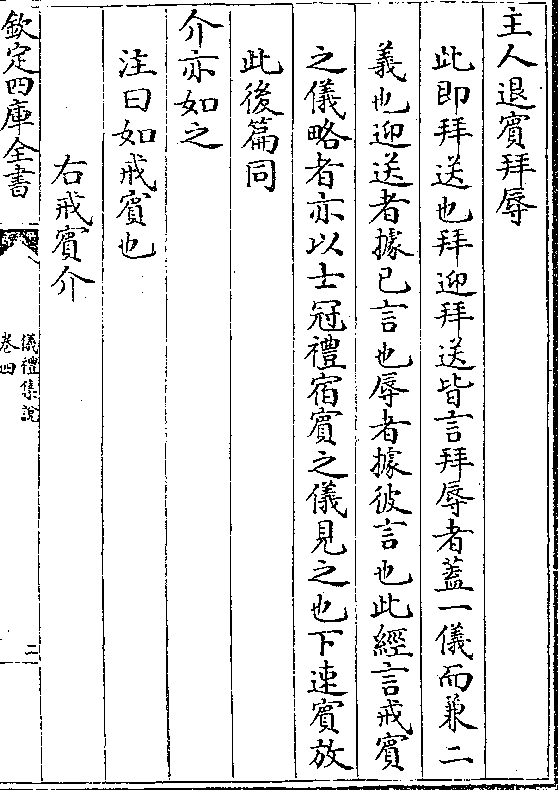 主人退賓拜辱
此即拜送也拜迎拜送皆言拜辱者蓋一儀而兼二
義也迎送者據已言也辱者據彼言也此經言戒賓
之儀略者亦以士冠禮宿賓之儀見之也下速賓放
此後篇同
介亦如之
注曰如戒賓也
右戒賓介
欽定四庫全書
儀禮集說
卷四
二